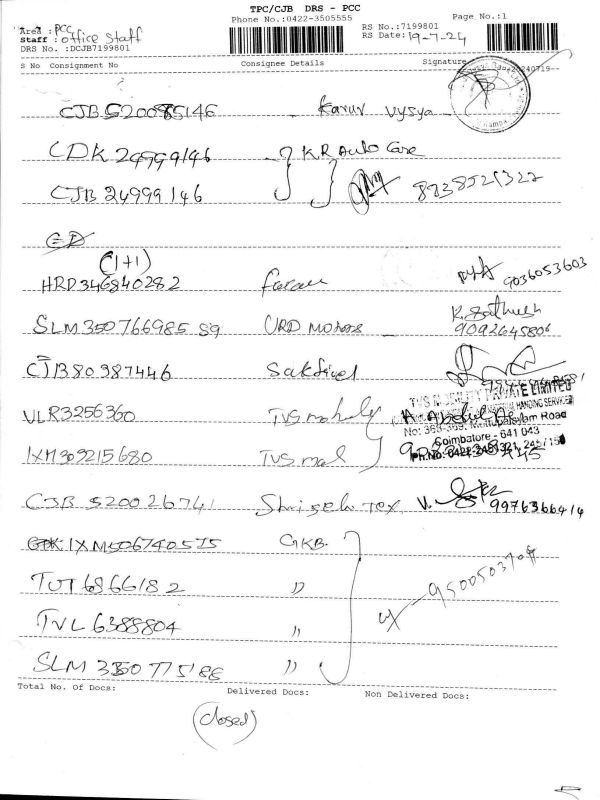 TPC/CJB DRS - PCC
Phone No.:0422-3505555 Page No.:1
Area : PCC RS No.:7199801
Staff : office Staff RS Date: 19-7-24
DRS No. :DCJB7199801
S No Consignment No Consignee Details Signature
CJB 520085146 - Karur Vysya -
CDK 24999146 - } KR Auto Care
CJB 24999146 8838521322
(1+1)
HRD 346840282 9036053603
SLM 350766985 89 URD Motors - K. Sathish 9092645806
CJB 80387446 Sakdivel
VLR3256360 TVS mobaly
TVS MOBILITY PRIVATE LIMITED
No: 363-369, Mettupalayam Road
Coimbatore - 641 043
IXM 309215680 TVS mal
CJB 520026741 Shri Tex V. 9976366414
IXM506740575 GKB.
TUT 6866182 "
TVL 6388804 "
SLM 350775186 "
9500503704
Total No. Of Docs: Delivered Docs: Non Delivered Docs:
(closed)